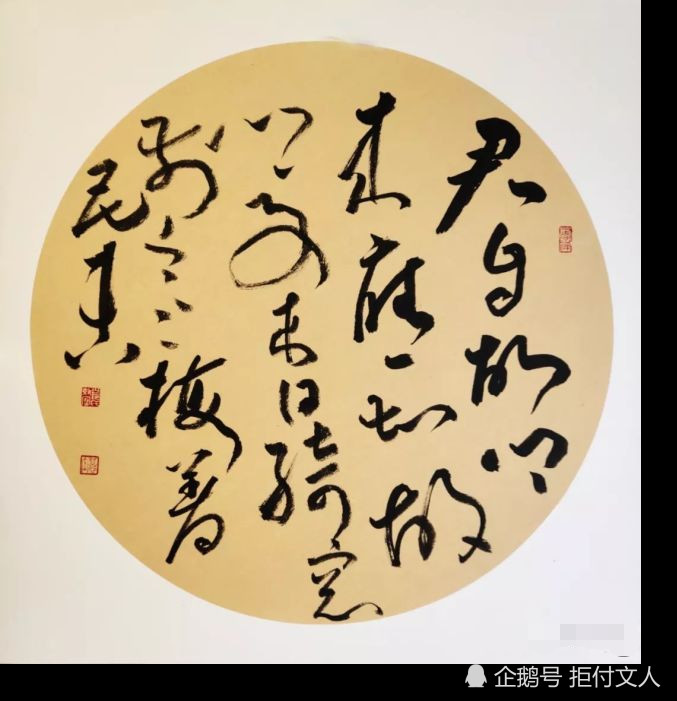 君自故乡
来應知故
乡事来日绮窗
前寒梅著
企鹅号 拒付文人